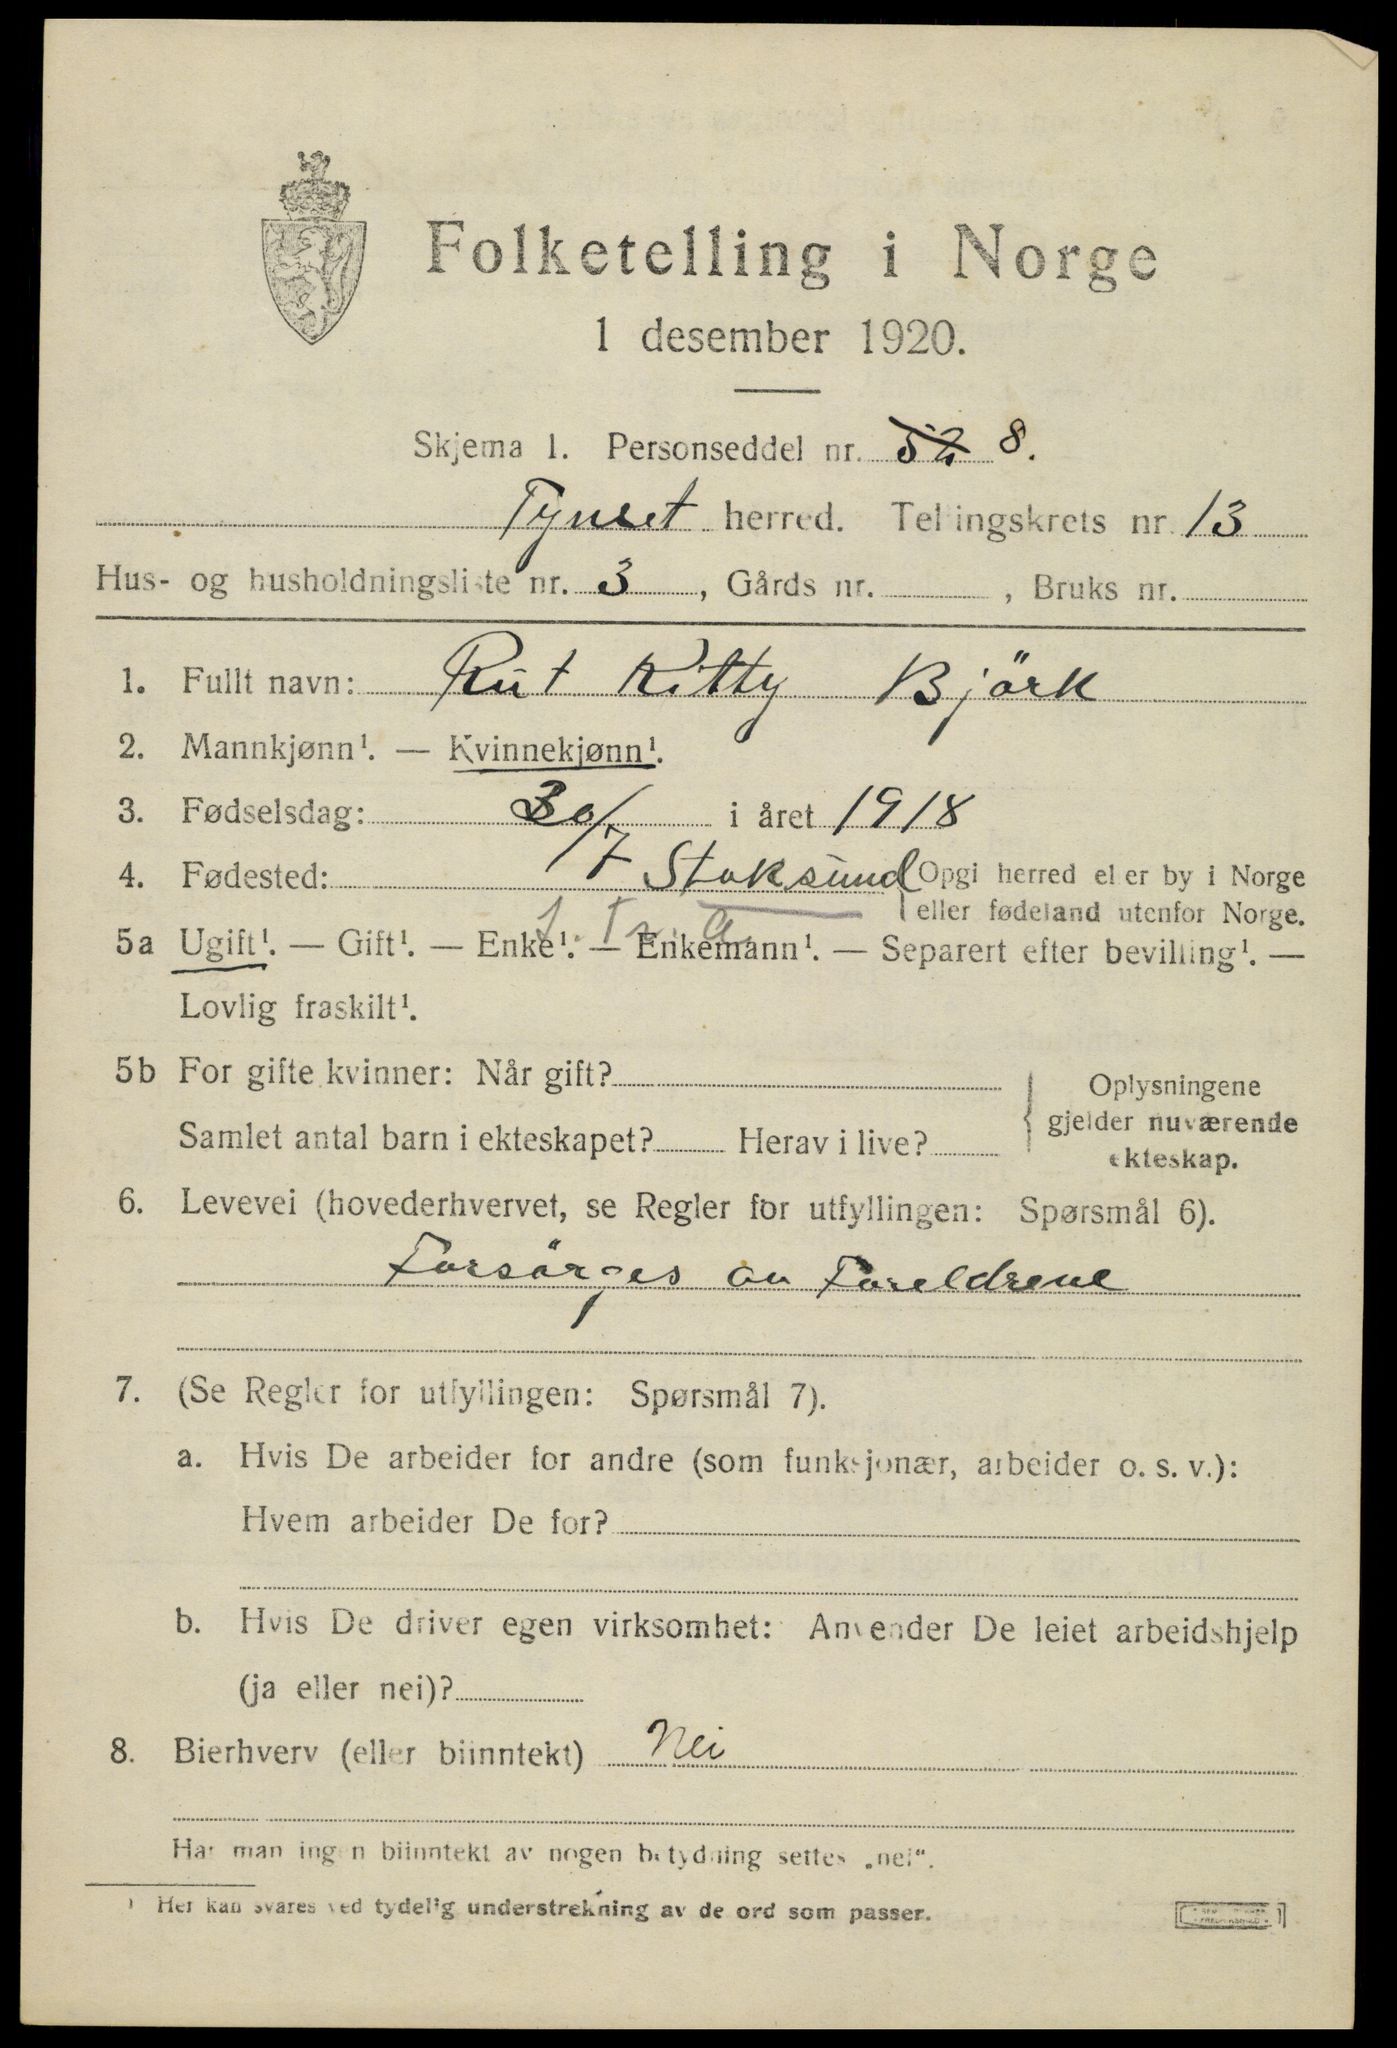 Folketelling i Norge
1 desember 1920.
Skjema 1. Personseddel nr. 52 8.
Tynset herred. Tellingskrets nr. 13
Hus- og husholdningsliste nr. 3, Gårds nr. , Bruks nr.
1. Fullt navn: Rut Kitty Björk
2. Mannkjønn¹. — Kvinnekjønn¹.
3. Fødselsdag: 30/7 i året 1918
4. Fødested: Stoksund { Opgi herred eller by i Norge
eller fødeland utenfor Norge.
5a Ugift¹. — Gift¹. — Enke¹. — Enkemann¹. — Separert efter bevilling¹. —
Lovlig fraskilt¹.
5b For gifte kvinner: Når gift?
Samlet antal barn i ekteskapet? Herav i live?
{ Oplysningene
gjelder nuværende
ekteskap.
6. Levevei (hovederhvervet, se Regler for utfyllingen: Spørsmål 6).
Forsörges av Foreldrene
7. (Se Regler for utfyllingen: Spørsmål 7).
a. Hvis De arbeider for andre (som funksjonær, arbeider o. s. v.):
Hvem arbeider De for?
b. Hvis De driver egen virksomhet: Anvender De leiet arbeidshjelp
(ja eller nei)?
8. Bierhverv (eller biinntekt) Nei
Har man ingen biinntekt av nogen betydning settes „nei“.
¹ Her kan svares ved tydelig understrekning av de ord som passer.